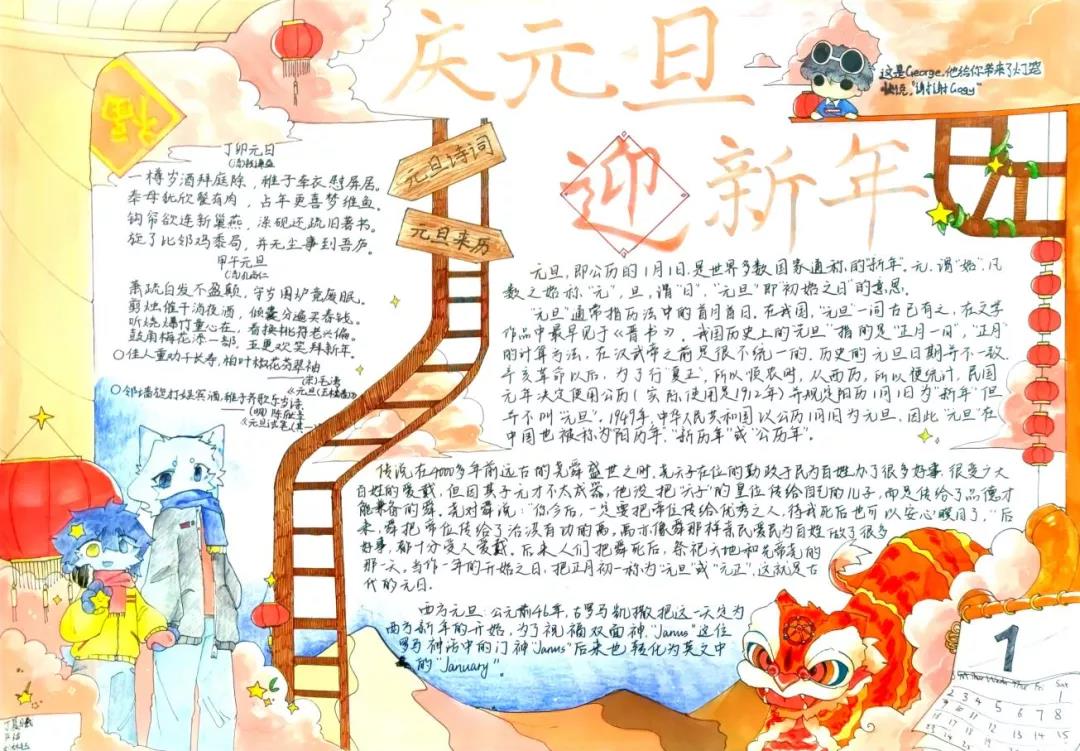 庆元旦
迎新年
这是George.他给你带来了灯笼
快说."谢谢Gogy"
福
元旦诗词
元旦来历
丁卯元日
一樽岁酒拜庭除，稚子牵衣慰屏居。
奉母犹欣餐有肉，占年更喜梦维鱼。
钩帘欲连新巢燕，涤砚还疏旧著书。
旋了比邻鸡黍局，并无尘事到吾庐。
甲午元旦
萧疏白发不盈颠，守岁围炉竟废眠。
剪烛催干消夜酒，倾囊分遍买春钱。
听烧爆竹童心在，看换桃符老兴偏。
鼓角梅花添一部，五更欢笑拜新年。
○佳人重劝千长寿，柏叶椒花芬翠袖
——(宋)毛滂
○邻墙旋打娱宾酒，稚子齐歌乐岁诗
——(明)陈献章
元旦，即公历的1月1日，是世界多数国家通称的"新年"。元，谓"始"，凡
数之始称"元"，旦，谓"日"，"元旦"即"初始之日"的意思。
"元旦"通常指历法中的首月首日。在我国，"元旦"一词古已有之，在文学
作品中最早见于《晋书》。我国历史上的元旦"指的是"正月一日"，"正月"
的计算方法，在汉武帝之前是很不统一的，历史的元旦日期并不一致
辛亥革命以后，为了行"夏正"，所以顺农时，从西历，所以便统计，民国
元年决定使用公历（实际使用是1912年）并规定阳历1月1日为"新年"但
并不叫"元旦"。1949年，中华人民共和国以公历1月1日为元旦，因此"元旦"在
中国也被称为"阳历年"，"新历年"或"公历年"。
传说在4000多年前远古的尧舜盛世之时，尧天子在位的勤政于民为百姓办了很多好事，很受广大
百姓的爱戴，但因其子无才不太成器，他没把"天子"的皇位传给自己的儿子，而是传给了品德才
能兼备的舜。尧对舜说："你今后，一定要把帝位传给优秀之人，待我死后也可以安心瞑目了，"后
来，舜把帝位传给了治洪有功的禹，禹亦像舜那样亲民爱民为百姓做了很多
好事，都十分受人爱戴。后来人们把舜死后，祭祀天地和先帝尧的
那一天，当作一年的开始之日，把正月初一称为"元旦"或"元正"，这就是古
代的元旦。
西方元旦：公元前46年，古罗马凯撒把这一天定为
西方新年的开始，为了祝福双面神"Janus"这位
罗马神话中的门神"Janus"后来也转化为英文中
的"January"。
1